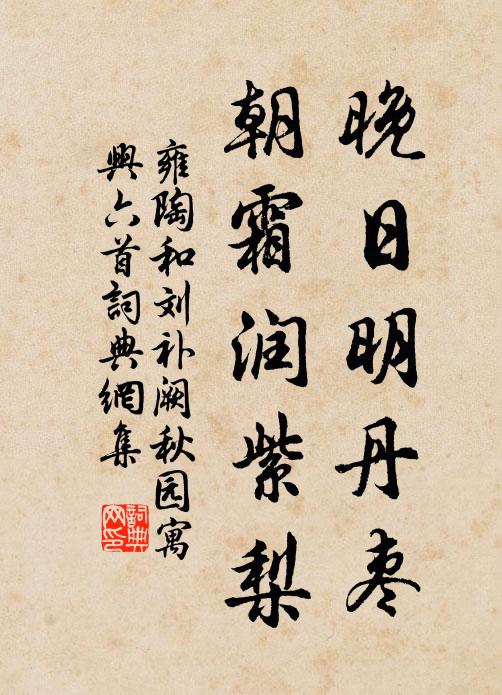 晚日明丹枣
朝霜润紫梨
雍陶和刘补阙秋园寓
興六首詞典網集
詞典
网印